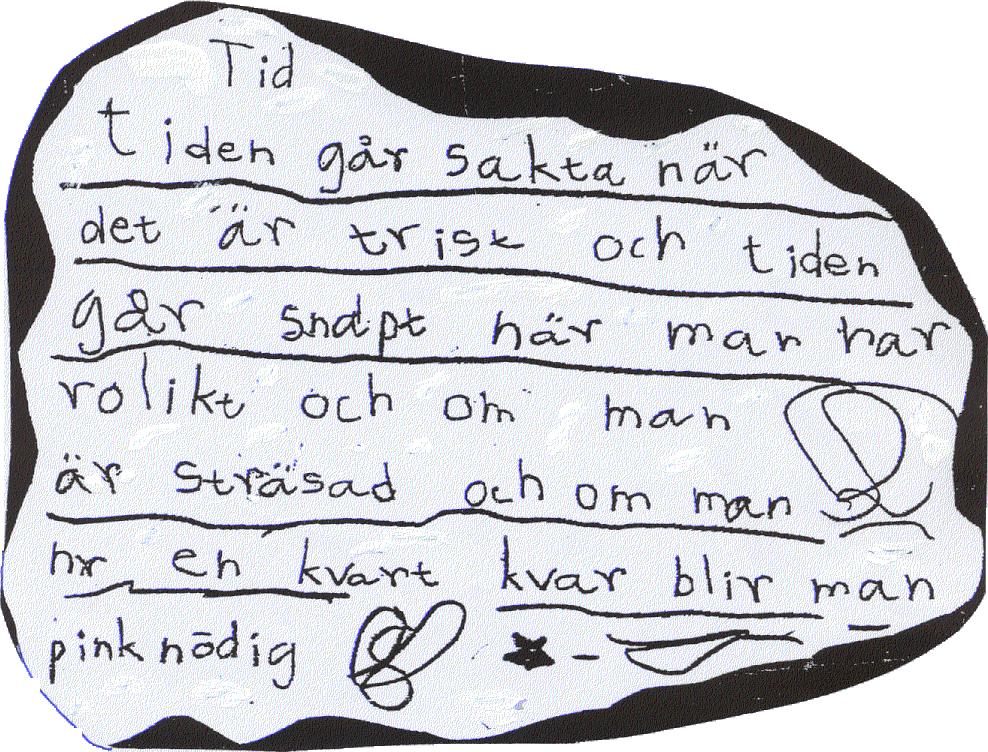 Tid
tiden går sakta när
det är trist och tiden
går snapt när man har
rolikt och om man
är sträsad och om man
hr en kvart kvar blir man
pinknödig